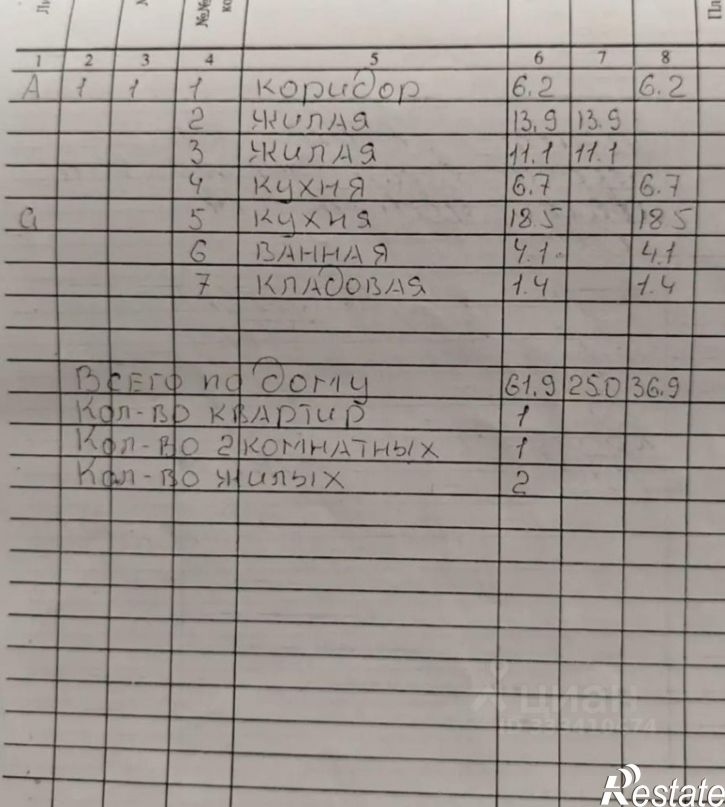 Ли
№№
ко
Пл
1 2 3 4 5 6 7 8
А 1 1 1 коридор 6.2 6.2
2 жилая 13.9 13.9
3 жилая 11.1 11.1
4 кухня 6.7 6.7
а 5 кухня 18.5 18.5
6 ванная 4.1 4.1
7 кладовая 1.4 1.4
Всего по дому 61.9 25.0 36.9
Кол-во квартир 1
Кол-во 2 комнатных 1
Кол-во жилых 2
циан
Restate